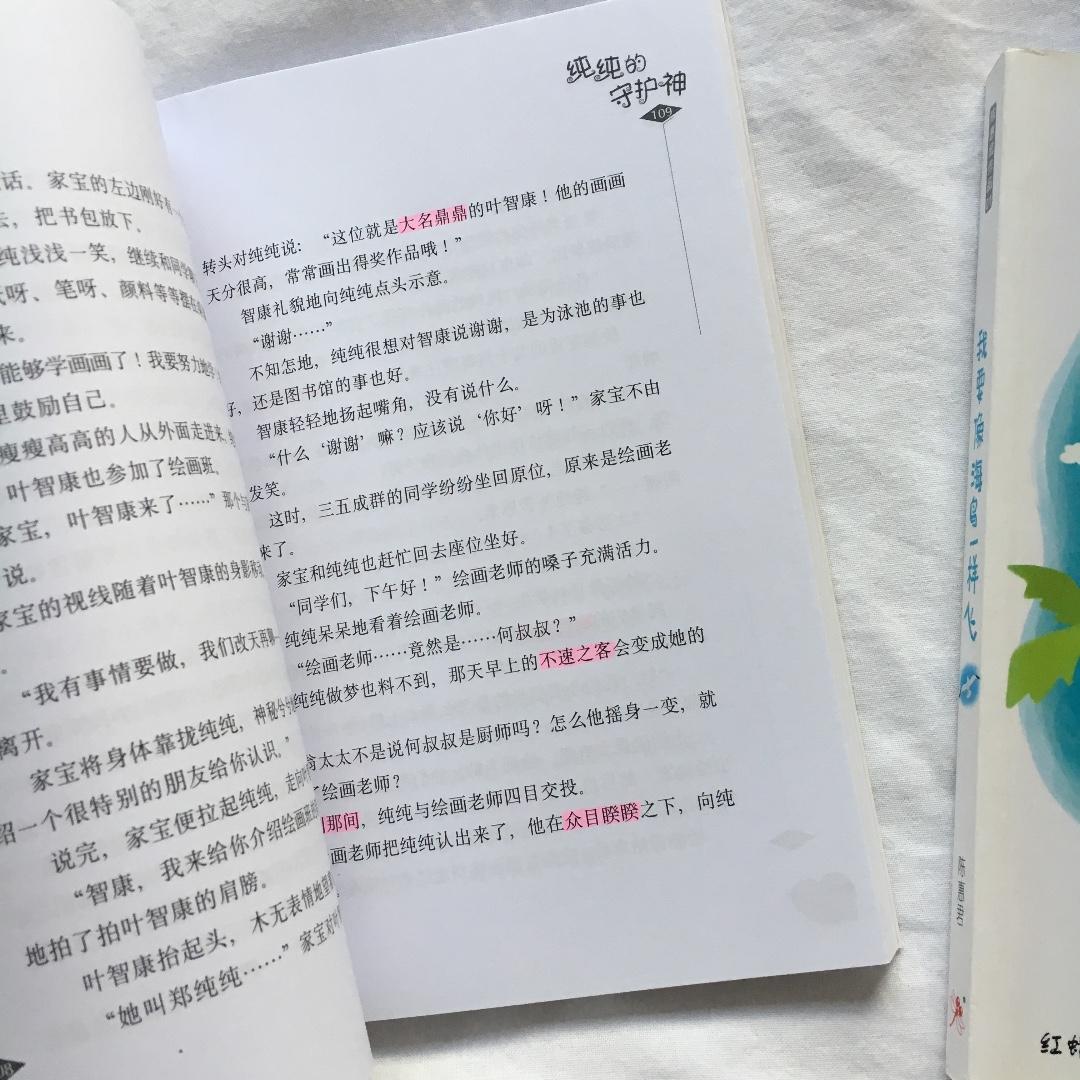 话。家宝的左边刚好有一
，把书包放下。
纯浅浅一笑，继续和同学
呀、笔呀、颜料等等摆在
来。
能够学画画了！我要努力地
里鼓励自己。
瘦瘦高高的人从外面走进来，
叶智康也参加了绘画班。
家宝，叶智康来了……”那个与
说。
家宝的视线随着叶智康的身影移动
。
“我有事情要做，我们改天再聊
离开。
家宝将身体靠拢纯纯，神秘兮
绍一个很特别的朋友给你认识。”
说完，家宝便拉起纯纯，走向叶
“智康，我来给你介绍绘画班的
地拍了拍叶智康的肩膀。
叶智康抬起头，木无表情地望
“她叫郑纯纯……”家宝对叶
08
纯纯的
守护神
109
转头对纯纯说：“这位就是大名鼎鼎的叶智康！他的画画
天分很高，常常画出得奖作品哦！”
智康礼貌地向纯纯点头示意。
“谢谢……”
不知怎地，纯纯很想对智康说谢谢，是为泳池的事也
好，还是图书馆的事也好。
智康轻轻地扬起嘴角，没有说什么。
“什么‘谢谢’嘛？应该说‘你好’呀！”家宝不由
发笑。
这时，三五成群的同学纷纷坐回原位，原来是绘画老
来了。
家宝和纯纯也赶忙回去座位坐好。
“同学们，下午好！”绘画老师的嗓子充满活力。
纯纯呆呆地看着绘画老师。
“绘画老师……竟然是……何叔叔？”
纯纯做梦也料不到，那天早上的不速之客会变成她的
翁太太不是说何叔叔是厨师吗？怎么他摇身一变，就
了绘画老师？
那间，纯纯与绘画老师四目交投。
画老师把纯纯认出来了，他在众目睽睽之下，向纯
我要像海鸟一样飞
陈惠君
红蜻